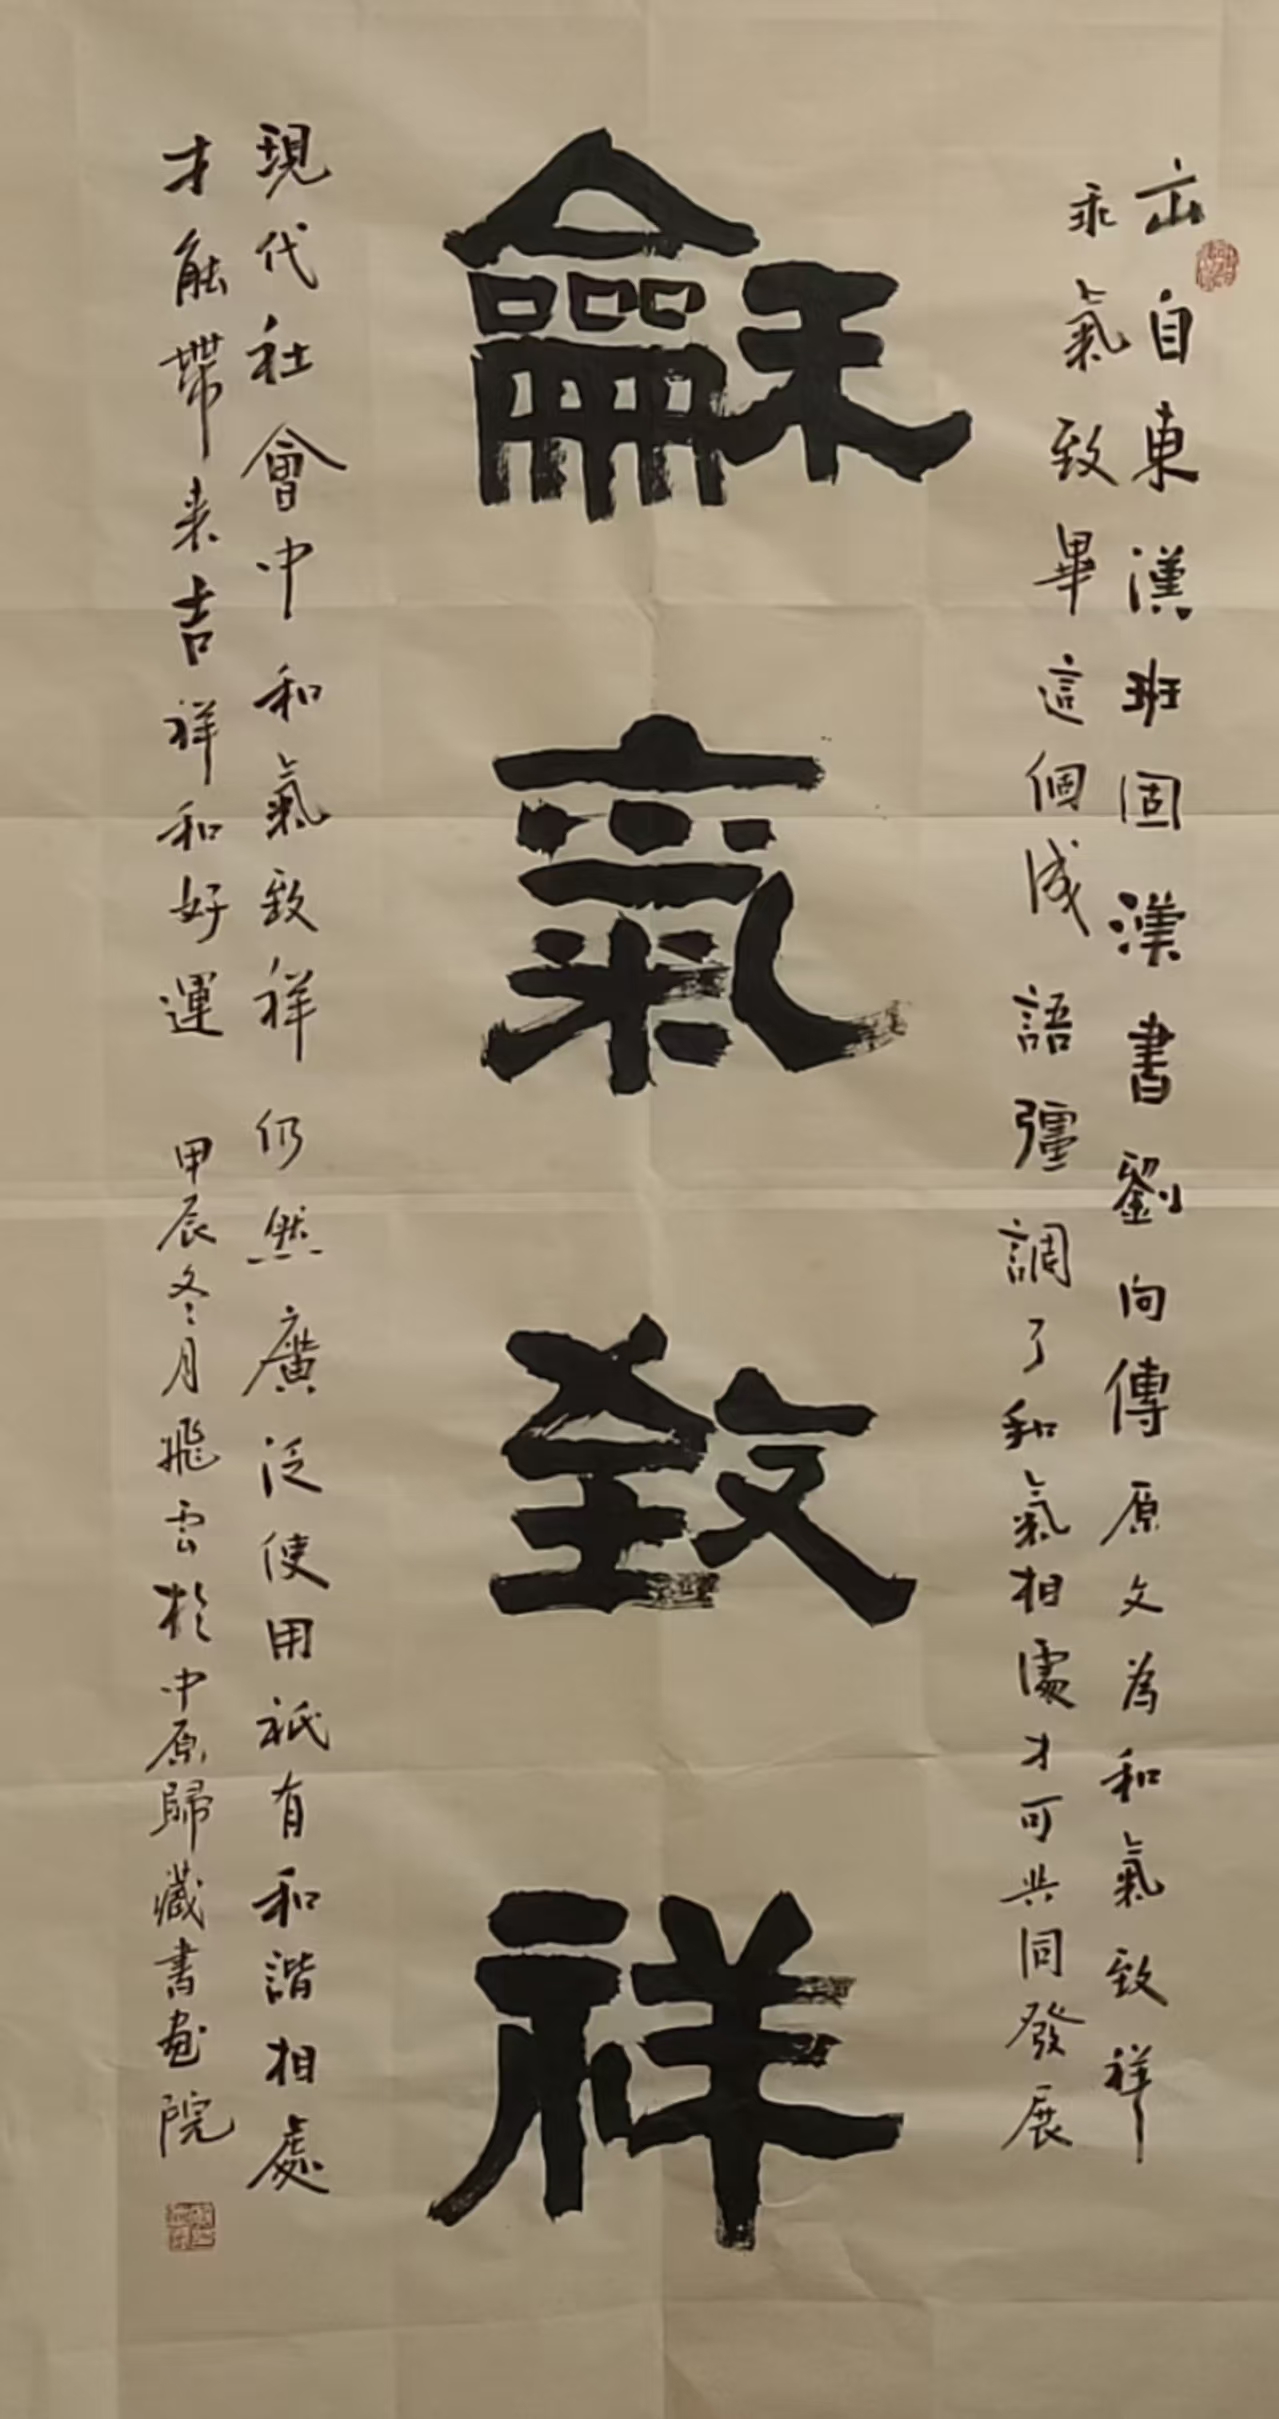 出自東漢班固漢書劉向傳原文為和氣致祥
乖氣致畢這個成語彊調了和氣相處才可共同發展
龢氣致祥
現代社會中和氣致祥仍然廣泛使用祇有和諧相處
才能帶来吉祥和好運 甲辰冬月飛雲於中原歸藏書画院